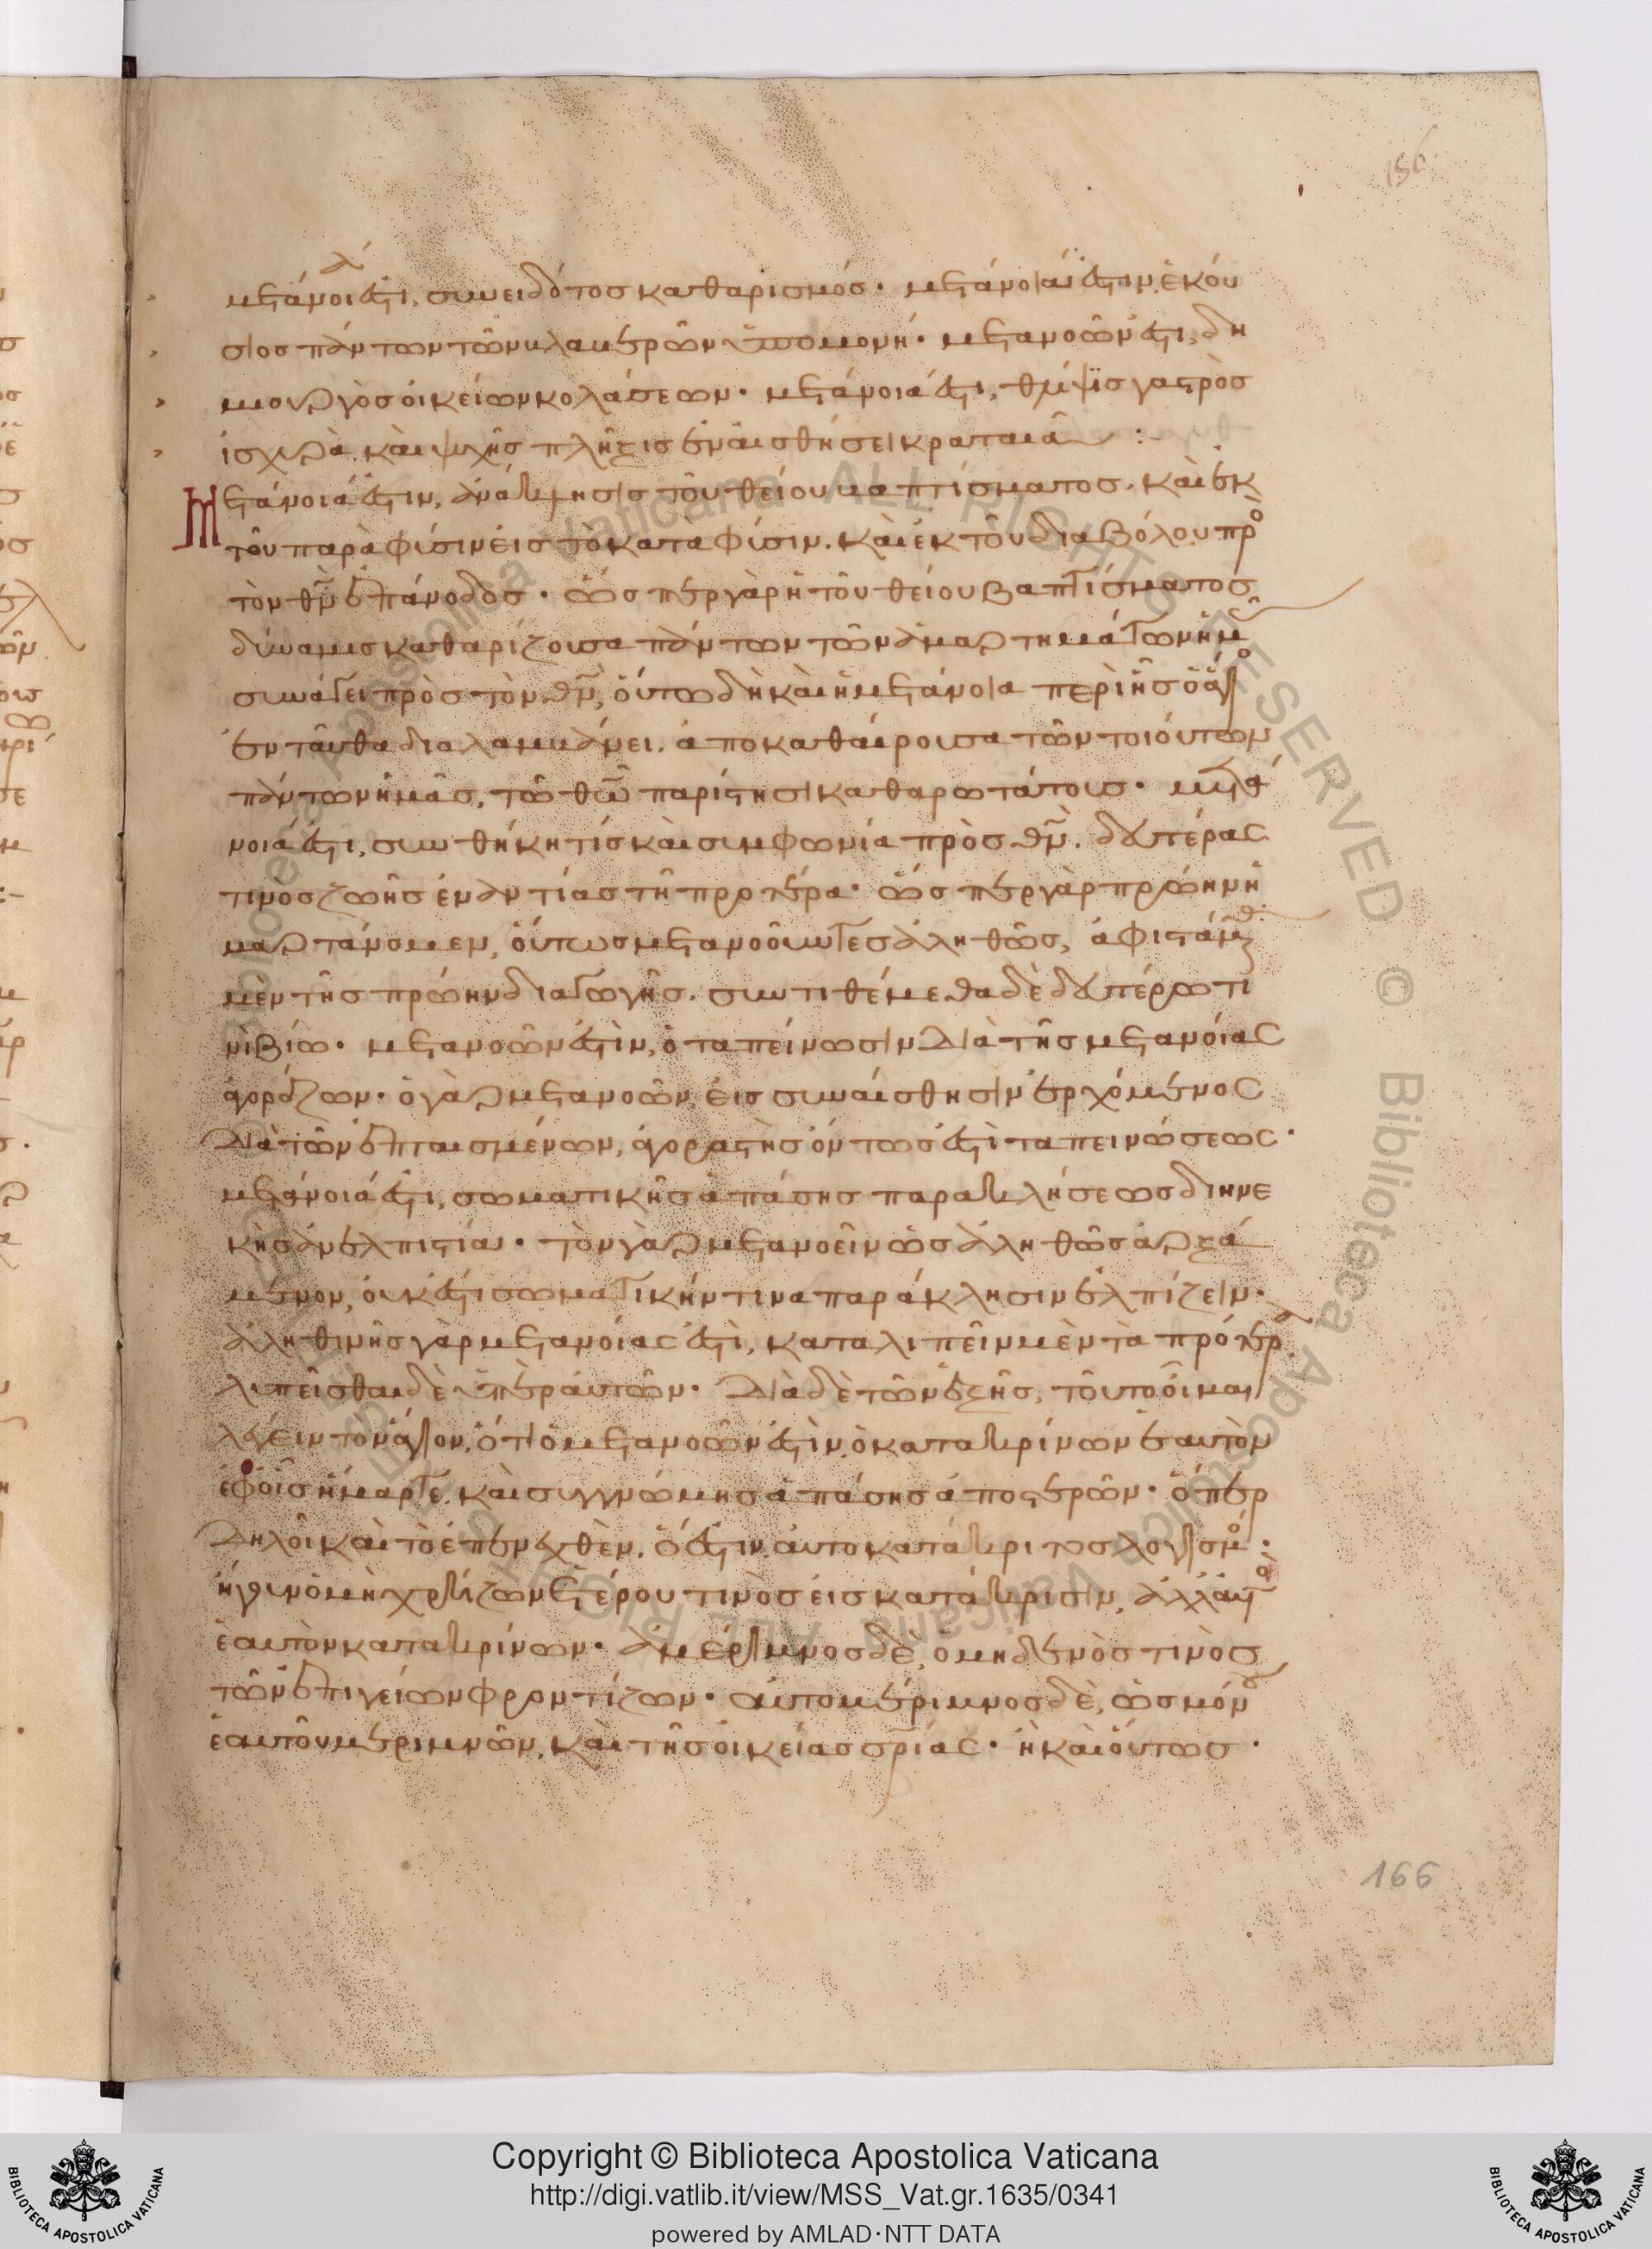 156
μετάνοιά ἐστι, συνειδότος καθαρισμός· μετάνοιά ἐστιν, ἑκού
σιος πάντων τῶν θλιβερῶν ὑπομονή· μετανοῶν ἐστι, δη
μιουργὸς οἰκείων κολάσεων· μετάνοιά ἐστι, θλίψις γαστρὸς
ἰσχυρὰ. καὶ ψυχῆς πλῆξις ἐν αἰσθήσει κραταιᾷ :-
Μετάνοιά ἐστιν, ἀνάκλησις τοῦ θείου βαπτίσματος. καὶ ἐκ
τοῦ παρὰ φύσιν εἰς τὸ κατὰ φύσιν. καὶ ἐκ τοῦ διαβόλου πρὸ
τὸν θν̄ ἐπάνοδος· ὥσπερ γὰρ ἡ τοῦ θείου βαπτίσματος
δύναμις καθαρίζουσα πάντων τῶν ἁμαρτημάτων ἡμᾶς
συνάγει πρὸς τὸν θν̄, οὕτω δὴ καὶ ἡ μετάνοια περὶ ἧς ὁ ἅγιο
ἐνταῦθα διαλαμβάνει. ἀποκαθαίρουσα τῶν τοιούτων
πάντων ἡμᾶς, τῶ θω̄ παρίστησι καθαρωτάτους· μετά
νοιά ἐστι, συνθήκη τίς καὶ συμφωνία πρὸς θν̄. δευτέρας
τινὸς ζωῆς ἐναντίας τῆ προτέρα· ὥσπερ γὰρ πρώην ἡ
μαρτάνομεν, οὕτως μετανοοῦντες ἀληθῶς, ἀφιστάμεθα
μὲν τῆς πρώην διαγωγῆς. συντιθέμεθα δὲ δευτέρω τι
νὶ βίω· μετανοῶν ἐστὶν, ὁ ταπείνωσιν διὰ τῆς μετανοίας
ἀγοράζων· ὁ γὰρ μετανοῶν, εἰς συναίσθησιν ἐρχόμενος
διὰ τῶν ἐπταισμένων, ἀγοραστὴς ὄντως ἐστὶ ταπεινώσεως·
μετάνοιά ἐστι, σωματικῆς ἁπάσης παρακλήσεως διηνε
κὴς ἀνελπιστία· τὸν γὰρ μετανοεῖν ὡς ἀληθῶς ἀρξά
μενον, οὐκ ἔστι σωματικήν τινα παράκλησιν ἐλπίζειν·
ἀληθινῆς γὰρ μετανοίας ἐστὶ, καταλιπεῖν μὲν τὰ πρότερα
λυπεῖσθαι δὲ ὑπὲρ αὐτῶν· διὰ δὲ τῶν ἑξῆς, τοῦτο οἶμαι
λέγειν τὸν ἅγιον, ὅτι ὁ μετανοῶν ἐστὶν, ὁ κατακρίνων ἑαυτὸν
ἐφ' οἷς ἥμαρτε. καὶ συγγνώμης ἁπάσης ἀποστερῶν· ὅπερ
δηλοῖ καὶ τὸ ἐπενεχθὲν. ὅ ἐστιν, αὐτοκατάκριτος λογισμό·
ἤγουν ὁ μὴ χρήζων ἑτέρου τινὸς εἰς κατάκρισιν, ἀλλ' αὐτὸ
ἑαυτὸν κατακρίνων· ἀμέριμνος δὲ, ὁ μηδενὸς τινὸς
τῶν ἐπιγείων φροντίζων· αὐτομέριμνος δὲ, ὡς μόνου
ἑαυτοῦ μεριμνῶν, καὶ τῆς οἰκείας σρίας· ἢ καὶ οὕτως·
166
Copyright © Biblioteca Apostolica Vaticana
http://digi.vatlib.it/view/MSS_Vat.gr.1635/0341
powered by AMLAD·NTT DATA
BIBLIOTECA APOSTOLICA VATICANA
BIBLIOTECA APOSTOLICA VATICANA